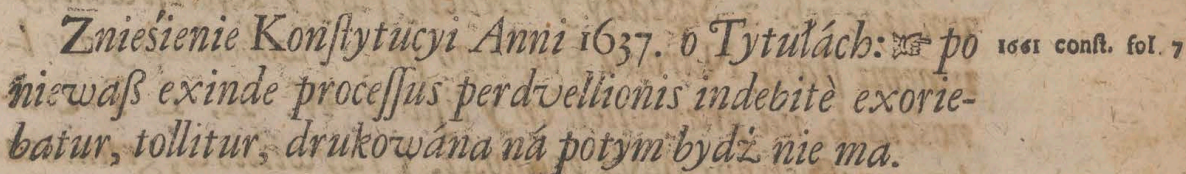 Znieśienie Konſtytucyi Anni 1637. o Tytułách: ☞ po 1661 conſt. fol. 7
niewaß exinde proceſſus perdvellionis indebitè exorie-
batur, tollitur, drukowána ná potym bydź nie ma.